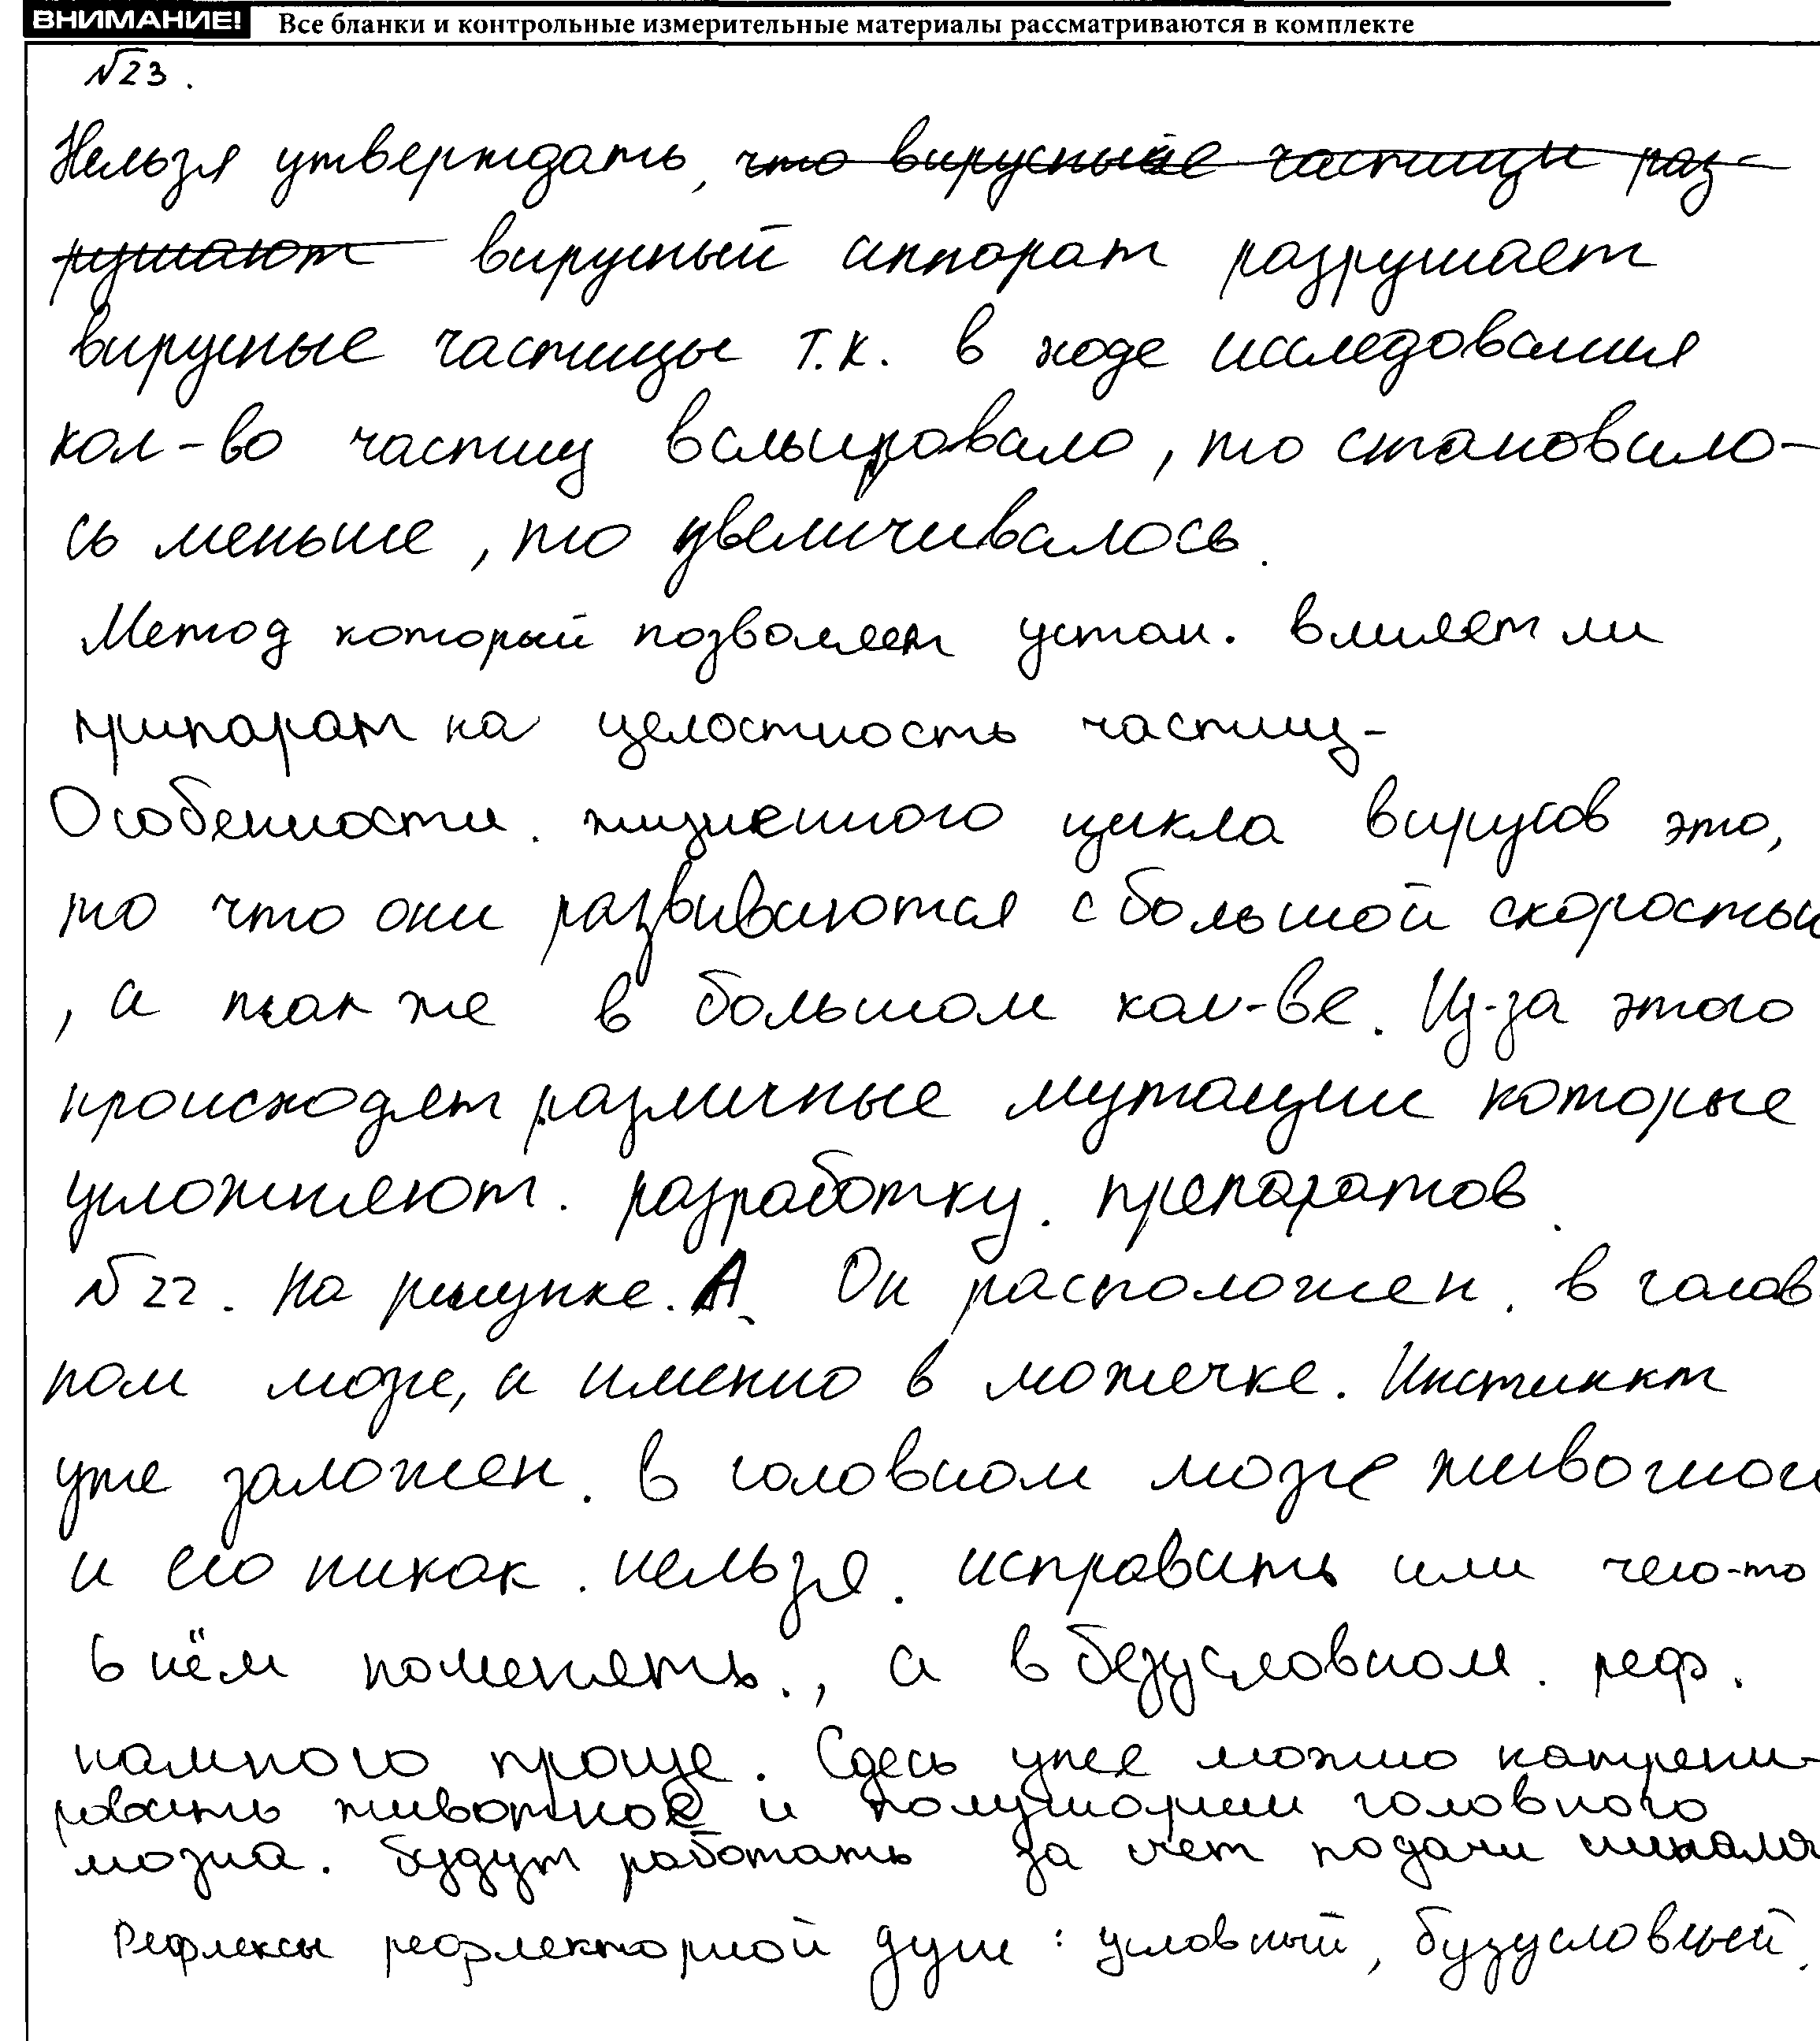 ВНИМАНИЕ! Все бланки и контрольные измерительные материалы рассматриваются в комплекте
№23.
Нельзя утверждать, что вирусные частицы раз-
рушают вирусный аппарат разрушает
вирусные частицы т.к. в ходе исследования
кол-во частиц вальировало, то становило-
сь меньше, то увеличивалось.
Метод который позволяет устан. влияет ли
припарат на целостность частиц-
Особенности. жизненного цикла вирусов это,
то что они развиваются с большой скоростью
, а так же в большом кол-ве. Из-за этого
происходят различные мутации которые
усложняют. разработку. препаратов.
№22. На рисунке. А. Он расположен. в голов
ном мозге, а именно в можечке. Инстинкт
уже заложен. в головном мозге живогного
и его никак. нельзя. исправить или чего-то
в нём поменять., а в безусловном. реф.
намного проще. Сдесь уже можно натрени-
ровать животное и полушории головного
мозга. будут работать за счет подачи сигнала
Рефлексы рефлекторной дуги: условный, бузусловный.